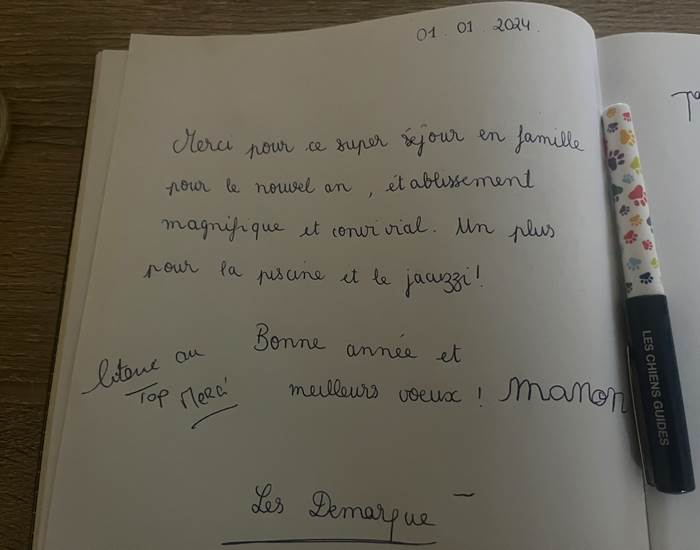 01.01.2024.
Merci pour ce super séjour en famille
pour le nouvel an, établissement
magnifique et convivial. Un plus
pour la piscine et le jacuzzi!
Bonne année et
meilleurs voeux ! Manon
au
Top Merci
Les Demarque
LES CHIENS GUIDES